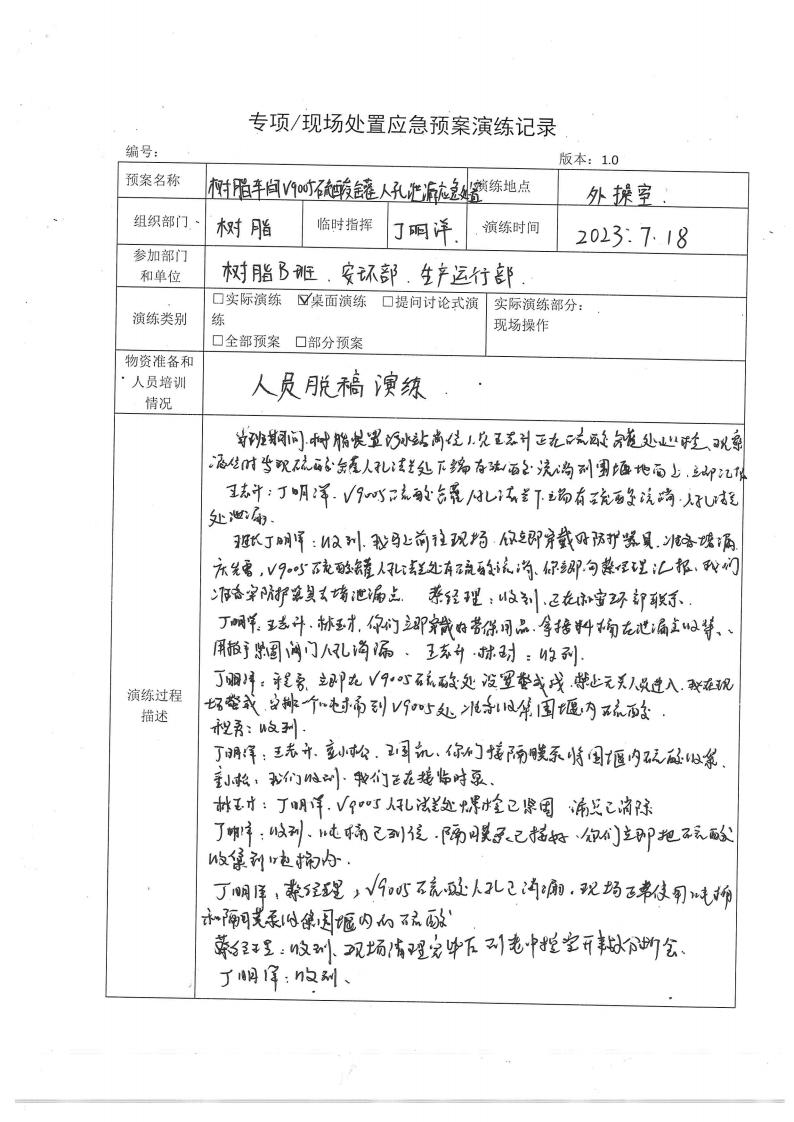 专项/现场处置应急预案演练记录
编号：
版本：1.0
预案名称 树脂车间V9005硫酸罐人孔泄漏应急处置 演练地点 外操室
组织部门 树脂 临时指挥 丁明洋 演练时间 2023.7.18
参加部门
和单位
树脂B班、安环部、生产运行部
演练类别
□实际演练 ☑桌面演练 □提问讨论式演
练
□全部预案 □部分预案
实际演练部分：
现场操作
物资准备和
人员培训
情况
人员脱稿演练
演练过程
描述
当班期间，树脂装置污水站岗位人员王志升正在硫酸罐处 检，观察
液位时发现硫酸罐人孔法兰处下端有硫酸流淌到围堰地面上，立即汇报
王志升：丁明洋，V9005硫酸罐人孔法兰下端有硫酸流淌，人孔法兰
处泄漏。
班长丁明洋：收到，我马上前往现场，你立即穿戴好防护器具，准备堵漏
V9005硫酸罐人孔法兰处有硫酸流淌，你立即向蔡经理汇报，我们
准备穿防护器具去堵泄漏点 蔡经理：收到，正在向安环部联系。
丁明洋：王志升、林玉才，你们立即穿戴好劳保用品，拿接料桶在泄漏点收集、
用扳手紧固阀门人孔消漏。 王志升、林玉才：收到。
丁明洋： 立即在V9005硫酸处设置警戒线，禁止无关人员进入，我在现
场警戒，安排一个吨桶到V9005处准备收集围堰内硫酸。
收到。
丁明洋：王志升、童小松、 你们接隔膜泵将围堰内硫酸收集。
童小松：我们收到，我们正在接临时泵、
林玉才：丁明洋，V9005人孔法兰处螺栓已紧固 漏点已消除
丁明洋：收到，吨桶已到位，隔膜泵已接好，你们立即把硫酸
收集到吨桶内。
丁明洋：蔡经理，V9005硫酸人孔已消漏，现场正常使用吨桶
和隔膜泵收集围堰内的硫酸
蔡经理：收到、现场清理完毕后到老中控室开事故分析会。
丁明洋：收到、